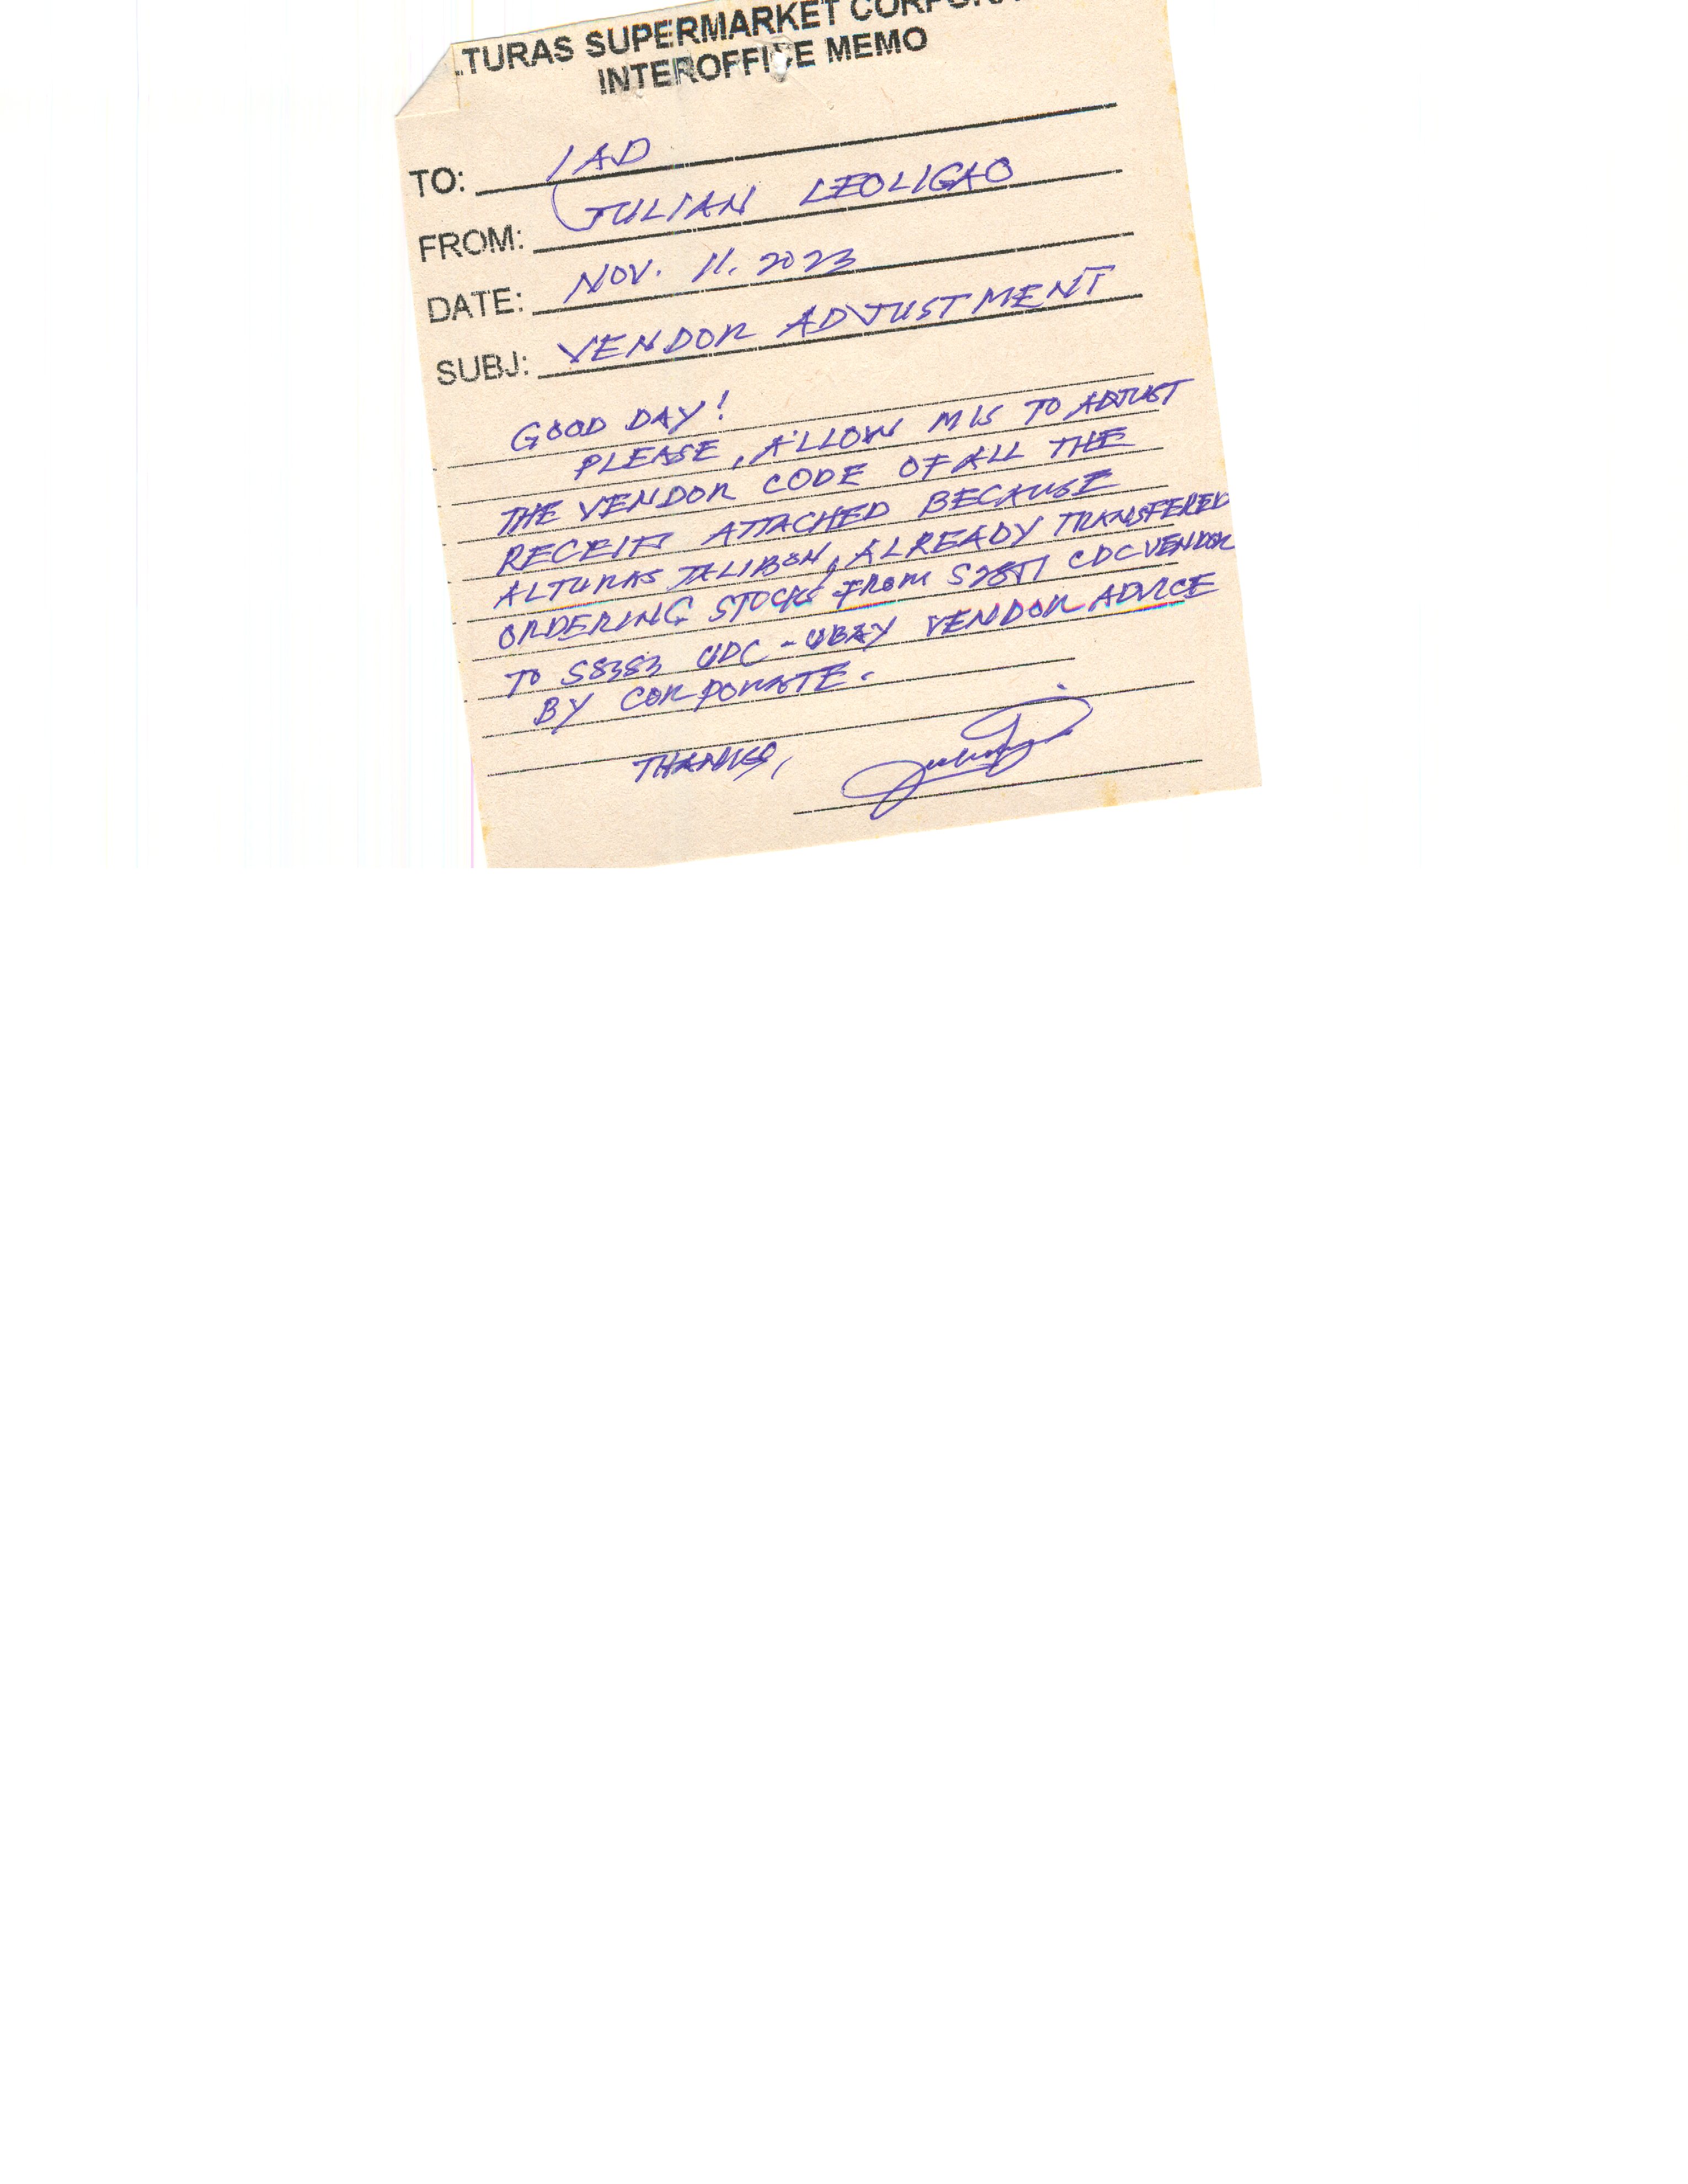 LTURAS SUPERMARKET CORPORA
INTEROFFICE MEMO
TO: IAD
FROM: JULIAN LEOLIGAO
DATE: NOV. 11. 2023
SUBJ: VENDOR ADJUSTMENT
GOOD DAY!
PLEASE, ALLOW MIS TO ADJUST
THE VENDOR CODE OF ALL THE
ATTACHED BECAUSE
ALTURAS TALIBON, ALREADY TRANSFERED
ORDERING STOCKS FROM CDC VENDOR
TO S8383 UDC - UBAY VENDOR ADVICE
BY CORPORATE.
THANKS,